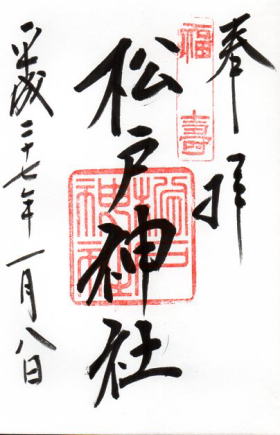 奉拝
福壽
松戸神社
松戸神社
平成二十七年一月八日